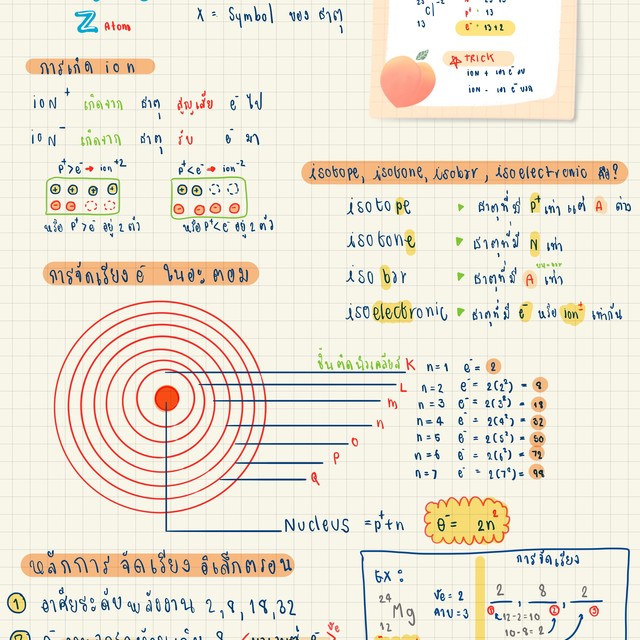 Z Atom
X = Symbol ของ ธาตุ
Cl
13
p⁺ = 13
e⁻ = 13+2
TRICK
ion + เอา e⁻ ลบ
ion - เอา e⁻ บวก
การเกิด ion
ion⁺ เกิดจาก ธาตุ สูญเสีย e⁻ ไป
ion⁻ เกิดจาก ธาตุ รับ e⁻ มา
p⁺>e⁻ → ion⁺²
p⁺<e⁻ → ion⁻²
หรือ p⁺>e⁻ อยู่ 2 ตัว
หรือ p⁺<e⁻ อยู่ 2 ตัว
isotope, isotone, isobar, isoelectronic คือ?
isotope ▸ ธาตุที่มี p⁺ เท่า แต่ A ต่าง
isotone ▸ ธาตุที่มี N เท่า
isobar ▸ ธาตุที่มี A เท่า
isoelectronic ▸ ธาตุที่มี e⁻ หรือ ion± เท่ากัน
การจัดเรียง e⁻ ในอะตอม
ชั้นติดนิวเคลียส K n=1 e⁻ = 2
L n=2 e⁻ = 2(2²) = 8
M n=3 e⁻ = 2(3²) = 18
n n=4 e⁻ = 2(4²) = 32
O n=5 e⁻ = 2(5²) = 50
P n=6 e⁻ = 2(6²) = 72
Q n=7 e⁻ = 2(7²) = 98
Nucleus = p⁺+n
e⁻ = 2n²
หลักการ จัดเรียง อิเล็กตรอน
① อาศัยระดับ พลังงาน 2,8,18,32
EX :
24
Mg
12
ve = 2
คาบ = 3
การจัดเรียง
2, 8, 2
① ② ③
12-2=10
10-8=2